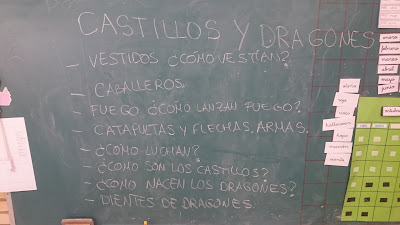 CASTILLOS Y DRAGONES
– VESTIDOS ¿CÓMO VESTÍAN?
– CABALLEROS
– FUEGO ¿CÓMO LANZAN FUEGO?
– CATAPULTAS Y FLECHAS, ARMAS.
– ¿CÓMO LUCHAN?
– ¿CÓMO SON LOS CASTILLOS?
– ¿CÓMO NACEN LOS DRAGONES?
– DIENTES DE DRAGONES
enero
febrero
marzo
abril
mayo
junio